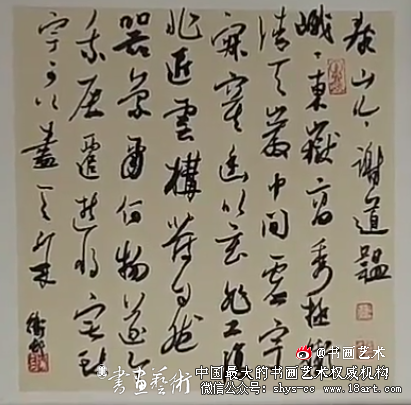 泰山吟謝道韞
峨〻東嶽高秀極衝
清天巖中間虛宇
寂寞幽以玄非工復
非匠雲構發自然
器象爾何物遂令
我屢遷逝將宅斯
宇可以盡天年
書畫藝術
@书画艺术
中国最大的书画艺术权威机构
微信公众号：shys-cc www.18art.com